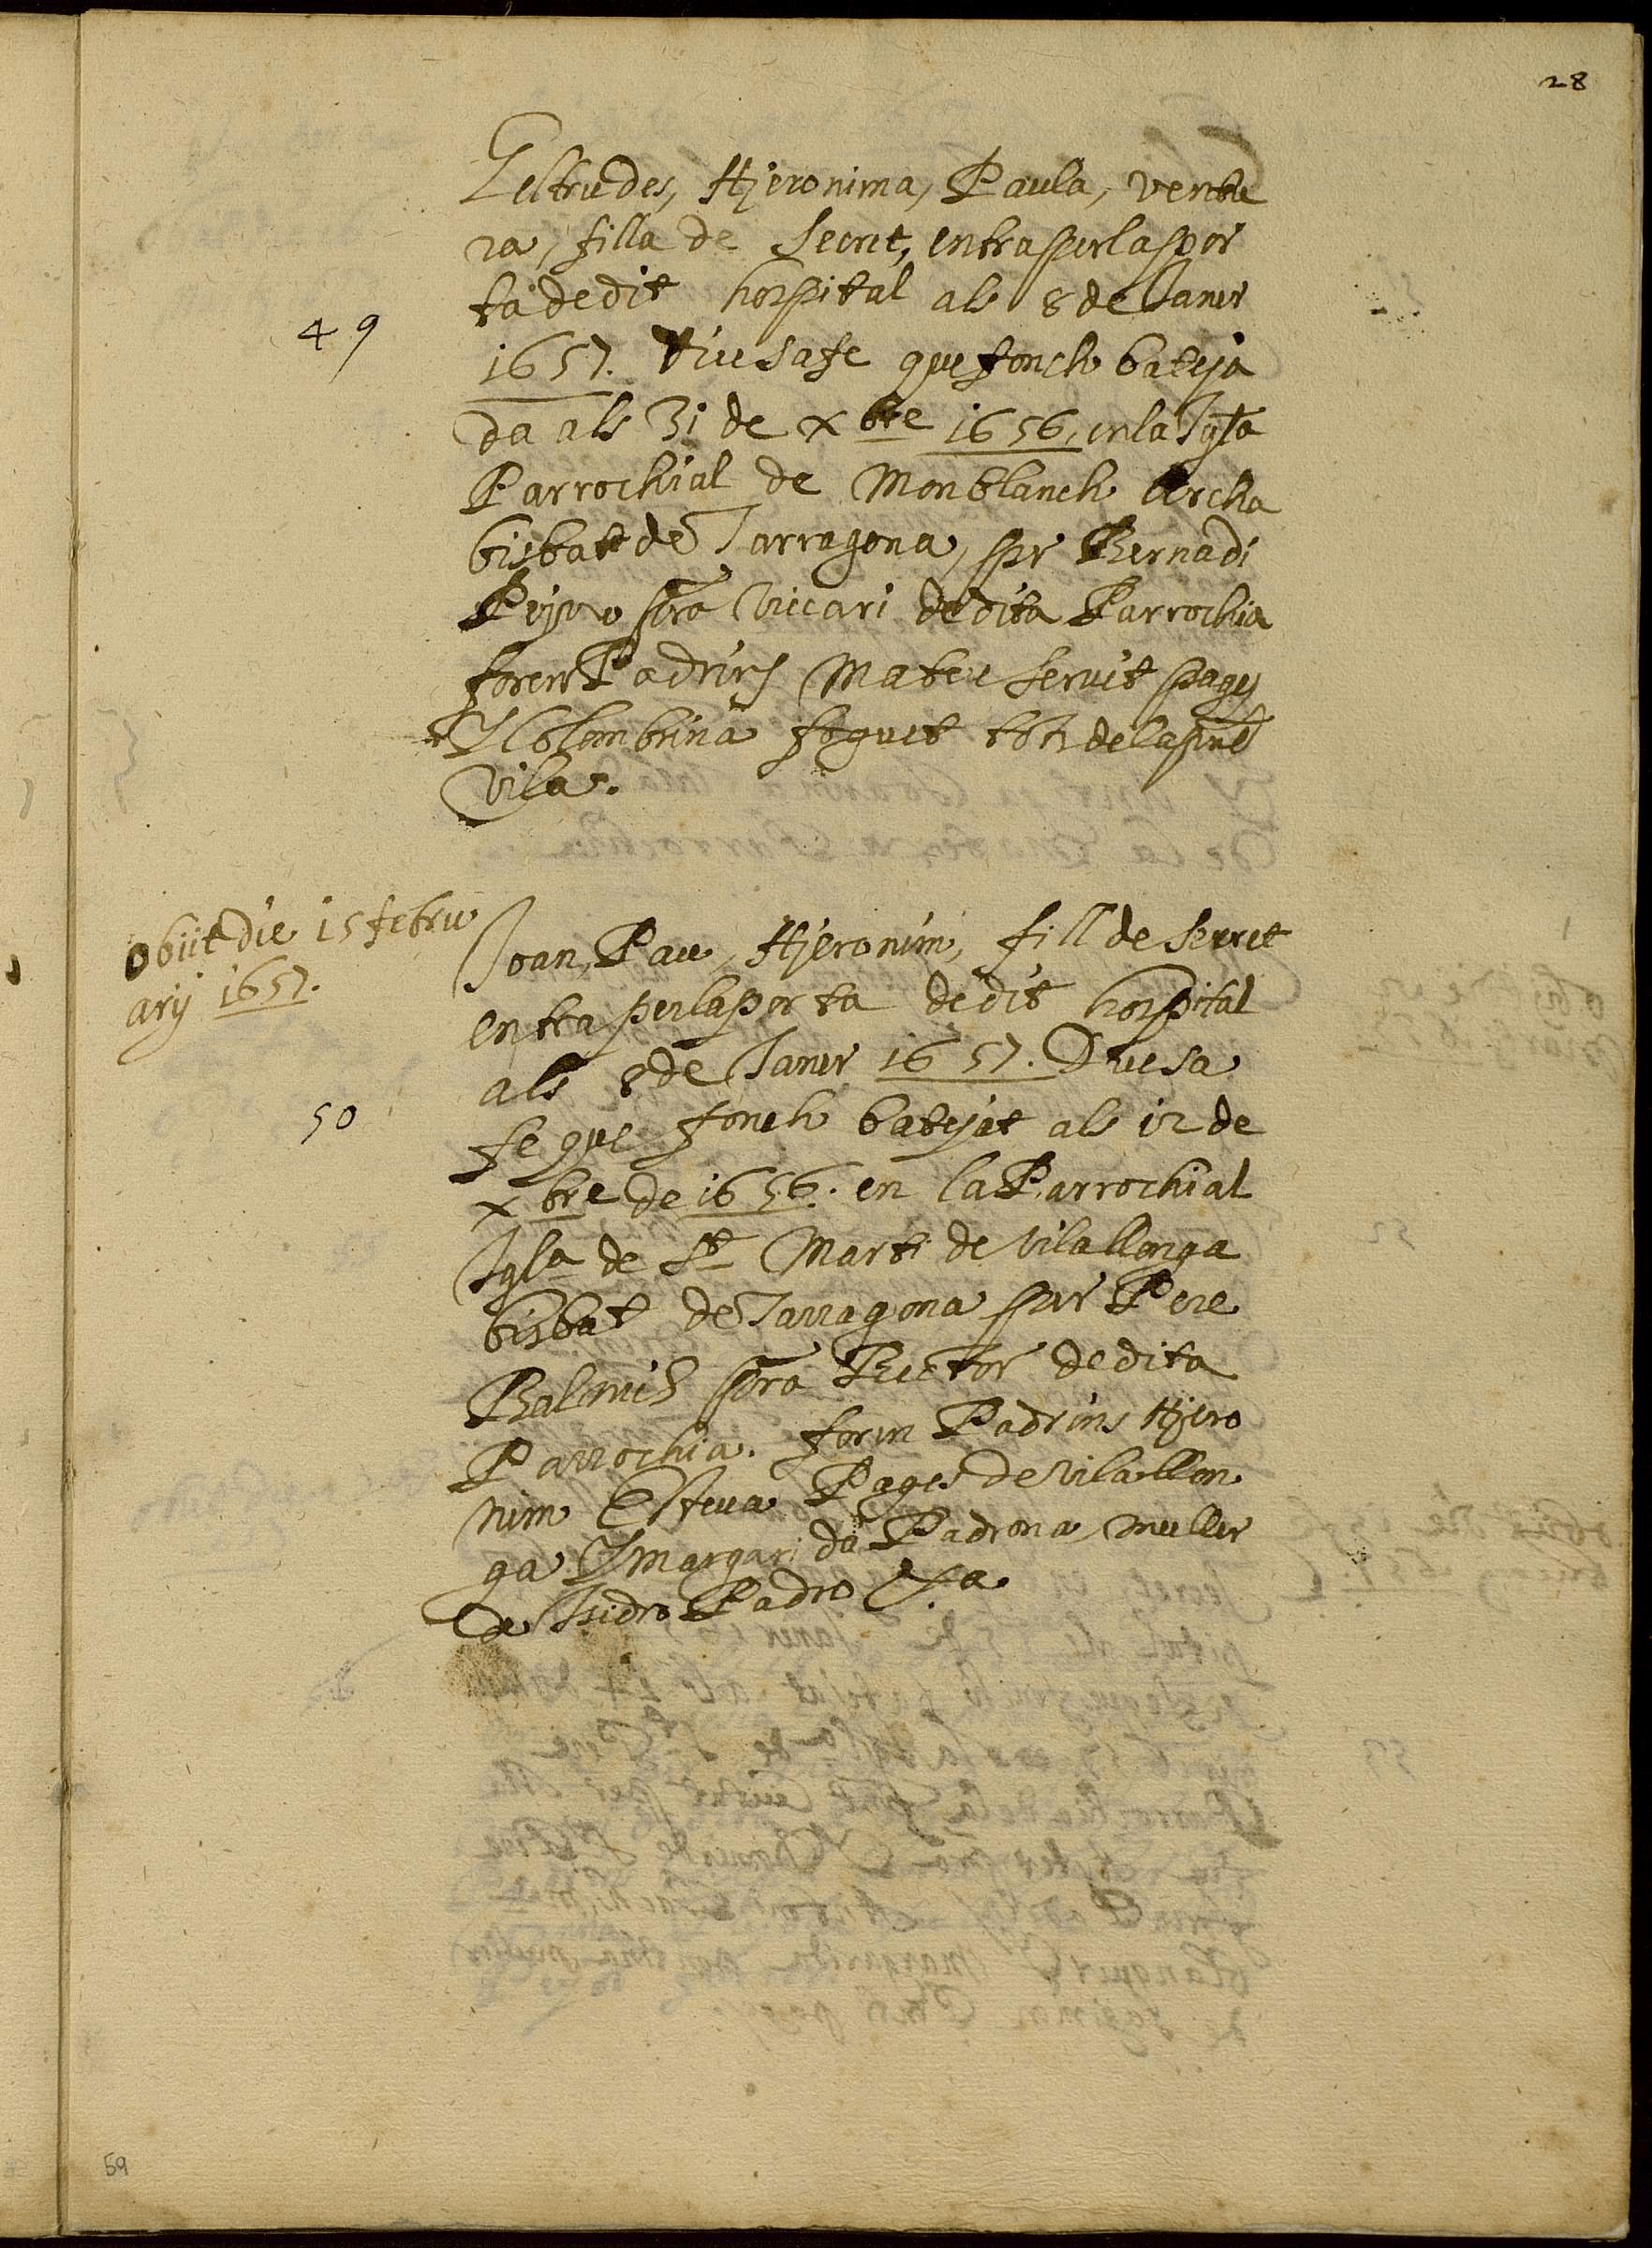 28
Geltrudes, Hjeronima, Paula, ventu
ra, filla de secret, entra per la por
ta de dit hospital als 8 de Janer
49
1657. Diu sa fe que fonch bateja
da als 31 de xbre 1656. en la Igla
Parrochial de Monblanch Archa
bisbat de Tarragona, per Bernadi
pra Vicari de dita Parrochia
foren Padrins Mateu Servit pages
Y Colombrina Foguet tots de la pnt
Vila.
obiit die 15 febru
arij 1657.
Joan, Pau, Hjeronim, fill de secret
entra per la porta de dit hospital
als 8 de Janer 1657. Diu sa
50
fe que fonch batejat als 12 de
xbre de 1656. en la Parrochial
Igla de St Marti de Vilallonga
bisbat de Tarragona per Pere
pra Rector de dita
Parrochia. foren Padrins Hjero
nim Esteva Pages de Vilallon
ga Y Margarida Padrona, muller
de Isidro Padro &a
59